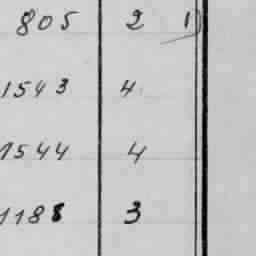 805 2 1)
1543 4.
1544 4
1188 3